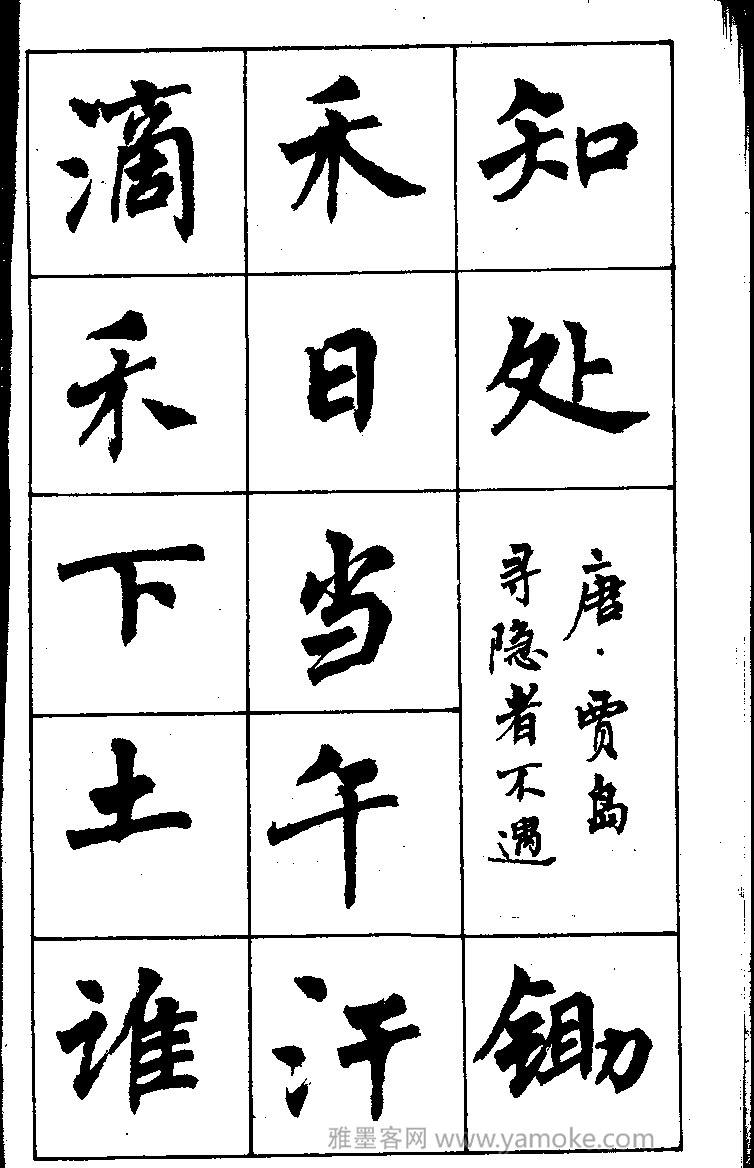 知处
唐·贾岛
寻隐者不遇
锄
禾日当午汗
滴禾下土谁
雅墨客网 www.yamoke.com